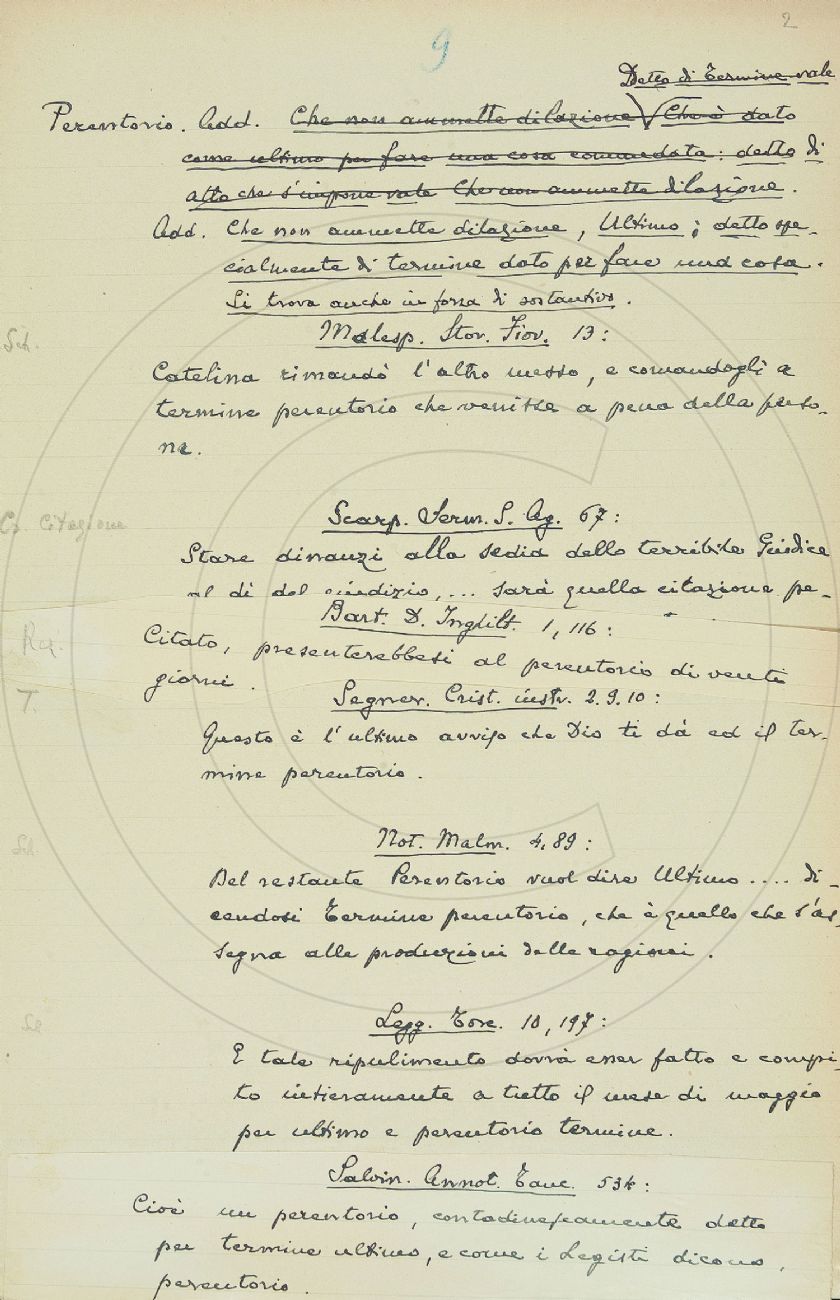 2
9
Detto di Termine vale
Perentorio. Add. Che non ammette dilazione Che è dato
come ultimo per fare una cosa comandata: detto di
atto che s'impone vale Che non ammette dilazione.
Add. Che non ammette dilazione, Ultimo; detto spe-
cialmente di termine dato per fare una cosa.
Si trova anche in forza di sostantivo.
Malesp. Stor. Fior. 13:
Sch.
Catelina rimandò l'altro messo, e comandogli a
termine perentorio che venisse a pena della perso-
na.
Scarp. Serm. S. Ag. 67:
Cr. Citazione
Stare dinnanzi alla sedia dello terribile Giudice
al dì del giudizio, ... sarà quella citazione pe-
Bart. D. Inghilt. 1, 116:
Citato, presenterebbesi al perentorio di venti
giorni.
T.
Segner. Crist. instr. 2.9.10:
Questo è l'ultimo avviso che Dio ti dà ed il ter-
mine perentorio.
Not. Malm. 4,89:
Sch.
Del restante Perentorio vuol dire Ultimo .... di-
cendosi Termine perentorio, che è quello che s'as-
segna alle produzioni delle ragioni.
Legg. Tosc. 10, 197:
E tale ripulimento dovrà esser fatto e compi-
to intieramente a tutto il mese di maggio
per ultimo e perentorio termine.
Salvin. Annot. Tanc. 534:
Cioè un perentorio, contadinescamente detto
per termine ultimo, e come i Legisti dicono,
perentorio.